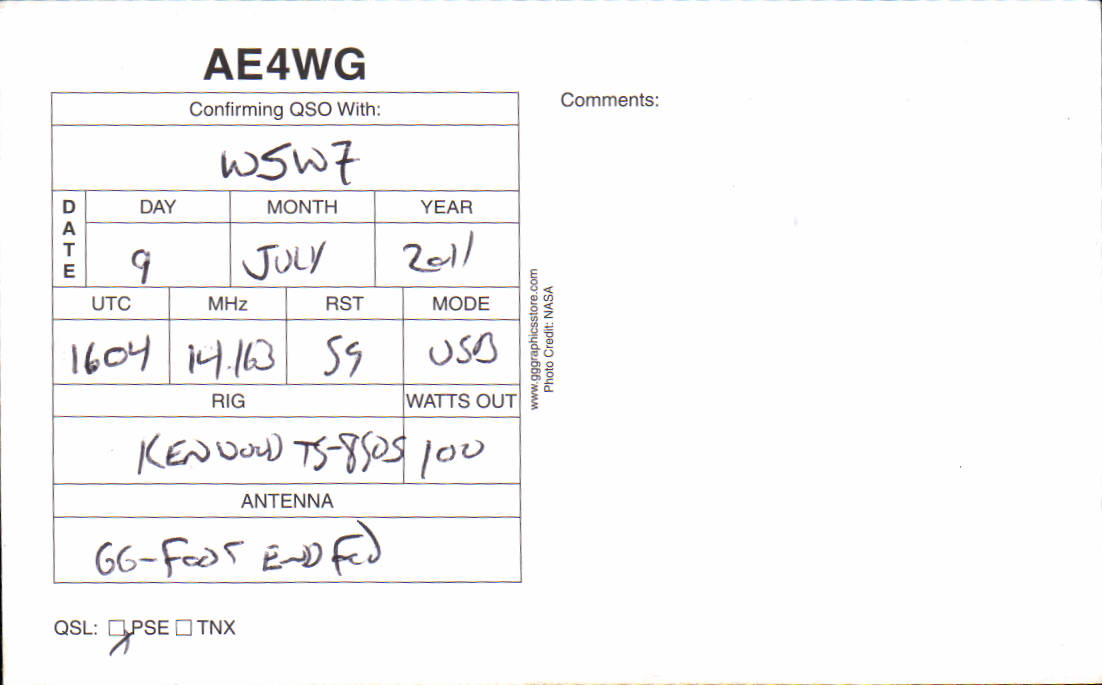 AE4WG
Confirming QSO With:
W5W7
DATE
DAY MONTH YEAR
9 JULY 2011
UTC MHz RST MODE
1604 14.163 59 USB
RIG WATTS OUT
KENWOOD TS-850S 100
ANTENNA
66-FOOT END FED
QSL: PSE TNX
Comments:
www.gggraphicsstore.com
Photo Credit: NASA